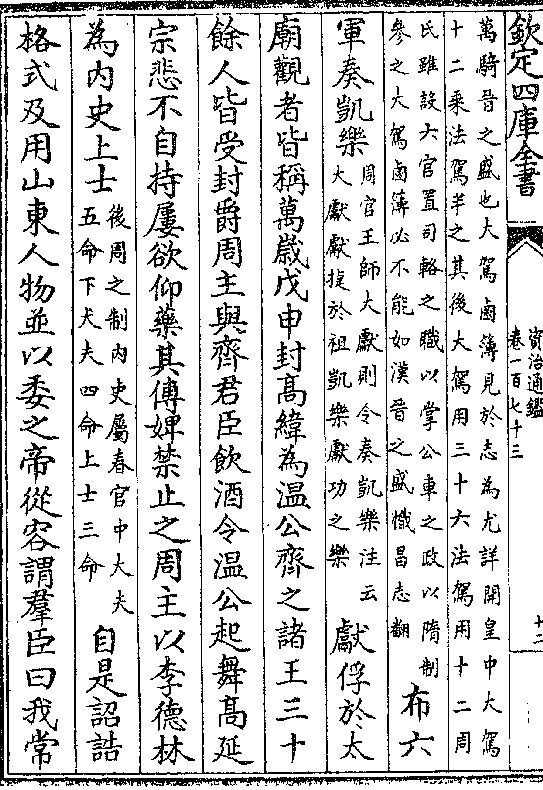 欽定四庫全書
資治通鑑
卷一百七十三
十二
萬騎晉之盛也大駕鹵簿見於志為尤詳開皇中大駕
十二乗法駕半之其後大駕用三十六法駕用十二周
氏雖設六官置司輅之職以掌公車之政以隋制
參之大駕鹵簿必不能如漢晉之盛幟昌志翻
布六
軍奏凱樂
周官王師大獻則令奏凱樂注云
大獻獻捷於祖凱樂獻功之樂
獻俘於太
廟觀者皆稱萬歲戊申封高緯為温公齊之諸王三十
餘人皆受封爵周主與齊君臣飲酒令温公起舞高延
宗悲不自持屢欲仰藥其傅婢禁止之周主以李德林
為内史上士
後周之制内史屬春官中大夫
五命下大夫四命上士三命
自是詔誥
格式及用山東人物並以委之帝從容謂羣臣曰我常